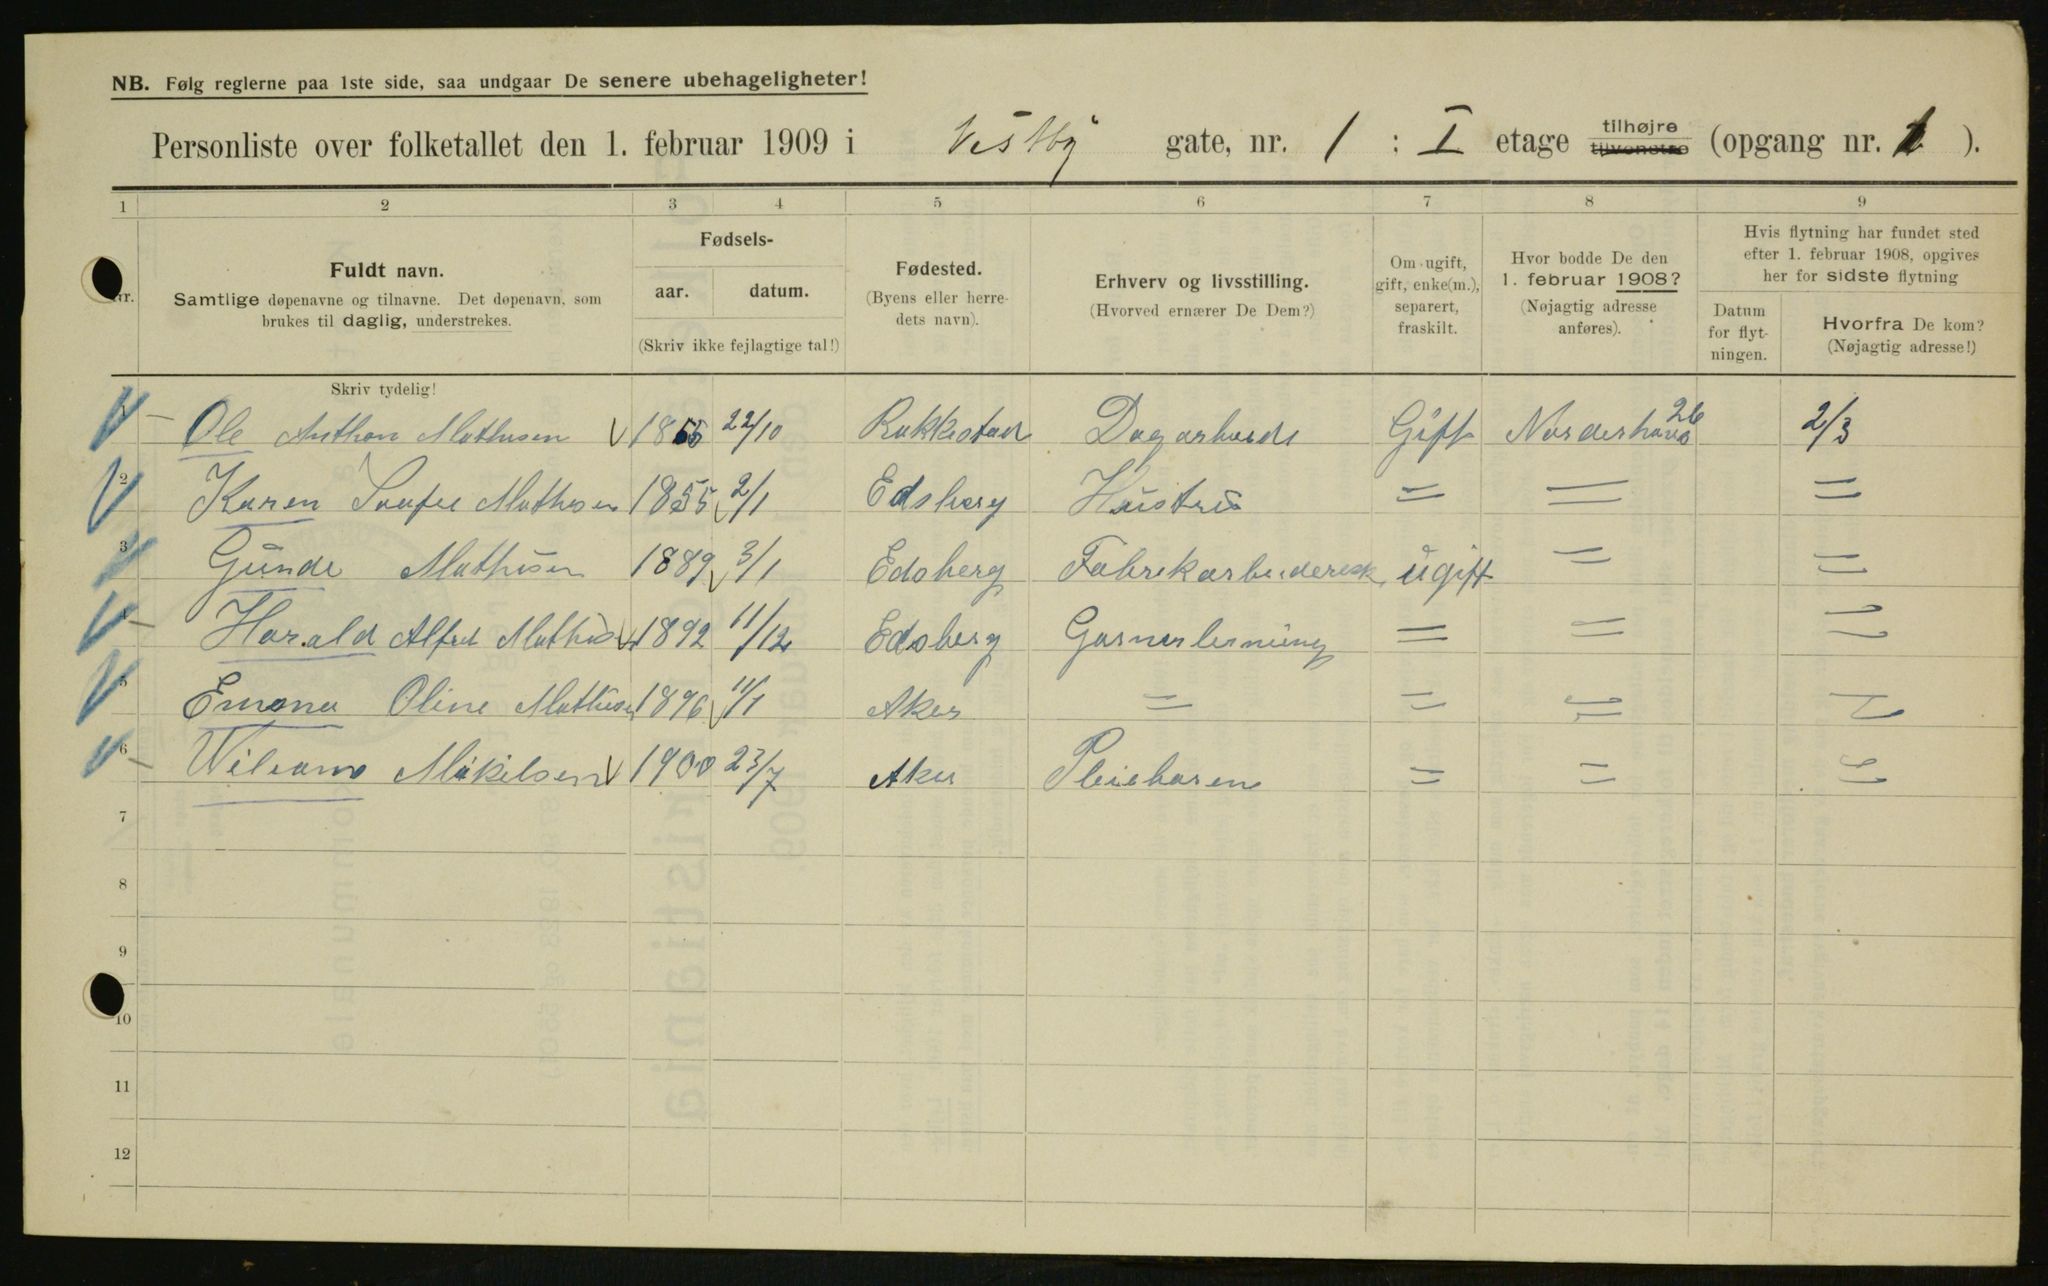 NB. Følg reglerne paa 1ste side, saa undgaar De senere ubehageligheter!
Personliste over folketallet den 1. februar 1909 i Vestby gate, nr. 1 : I etage tilhøjre tilvenstre (opgang nr. 1 ).
1 2 3 4 5 6 7 8 9
Nr.
Fuldt navn.
Samtlige døpenavne og tilnavne. Det døpenavn, som
brukes til daglig, understrekes.
Skriv tydelig!
Fødsels-
aar. datum.
(Skriv ikke fejlagtige tal!)
Fødested.
(Byens eller herre-
dets navn).
Erhverv og livsstilling.
(Hvorved ernærer De Dem?)
Om ugift,
gift, enke(m.),
separert,
fraskilt.
Hvor bodde De den
1. februar 1908?
(Nøjagtig adresse
anføres).
Hvis flytning har fundet sted
efter 1. februar 1908, opgives
her for sidste flytning
Datum
for flyt-
ningen.
Hvorfra De kom?
(Nøjagtig adresse!)
1 Ole Anthon Mathisen 1855 22/10 Rakkestad Dagarbeide Gift Norderhovs 26 2/3
2 Karen Mathisen 1855 2/1 Edsberg Hüstrü = = =
3 Günde Mathisen 1889 3/1 Edsberg Fabrekarbeideresk ügift = =
4 Harald Alfred Mathisen 1892 11/12 Edsberg = = =
5 Emma Oline Mathisen 1896 11/1 Aker = = = =
6 Mikelsen 1900 23/7 Aker Pleiebaren = = =
7
8
9
10
11
12